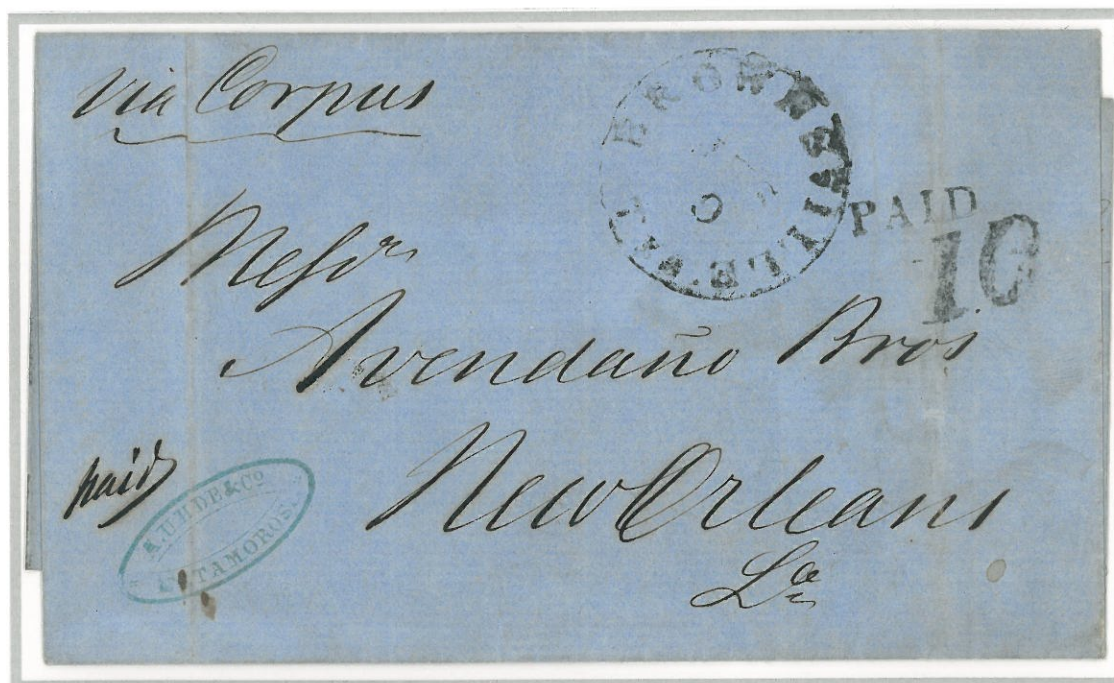 via Corpus
BROWNSVILLE.
PAID
10
Messrs
Avendaño Bros
New Orleans
La
paid
A. UHDE & Co
MATAMOROS.